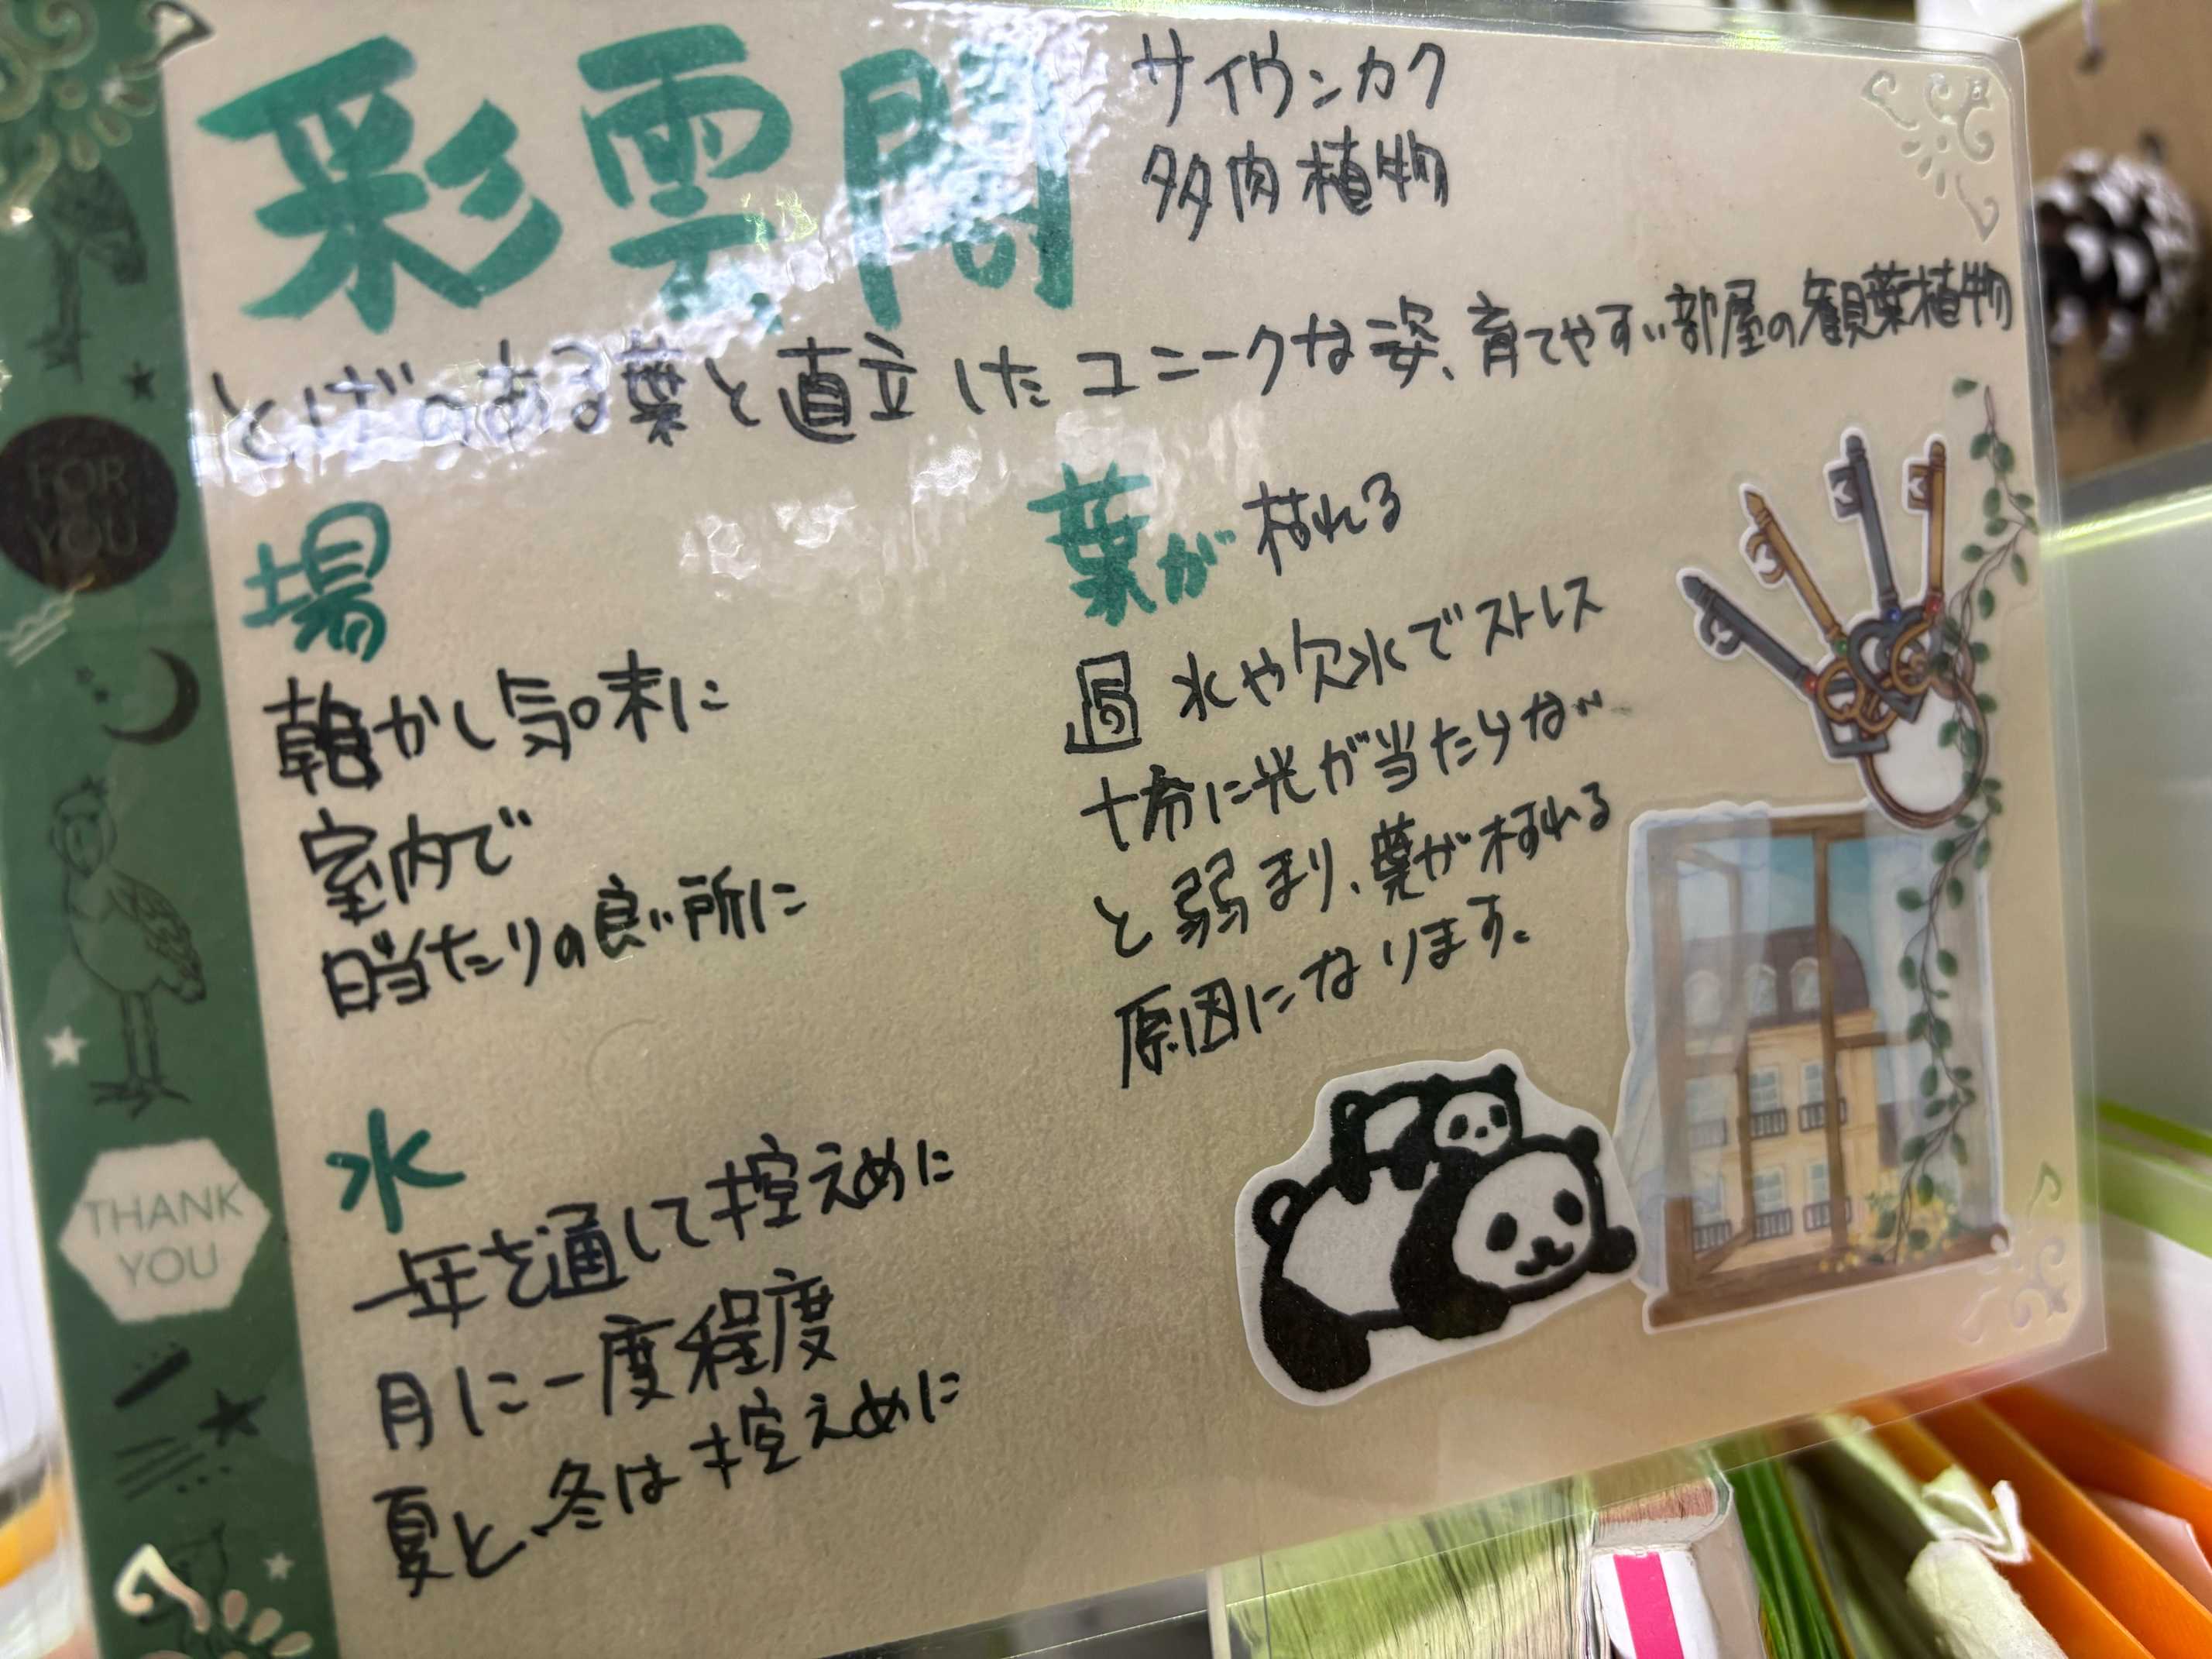 彩雲閣
サイウンカク
多肉植物
とげのある葉と直立したユニークな姿、育てやすい部屋の観葉植物
場
乾かし気味に
室内で
日当たりの良い所に
水
一年を通して控えめに
月に一度程度
夏と、冬は控えめに
葉が枯れる
過水や欠水でストレス
十分に光が当たらない
と弱まり、葉が枯れる
原因になります。
FOR
YOU
THANK
YOU